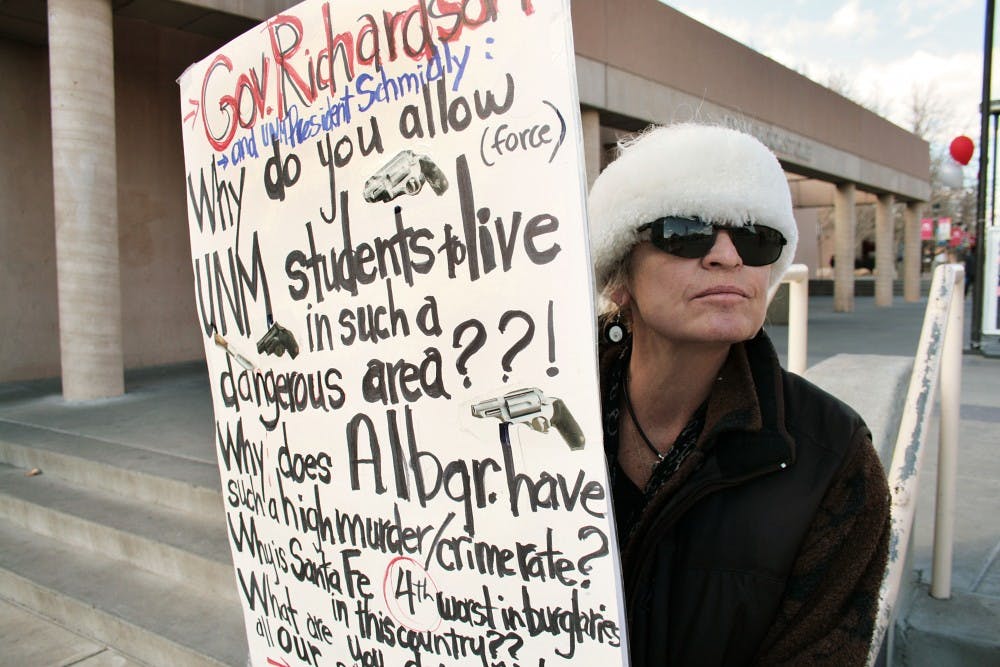 → Gov. Richardson
→ and UNM President Schmidly :
Why do you allow
(force)
UNM students to live
in such a
dangerous area???!
Why does Albqr. have
such a high murder/crime rate?
Why is Santa Fe 4th worst in burglaries
in this country??
What are you
all our